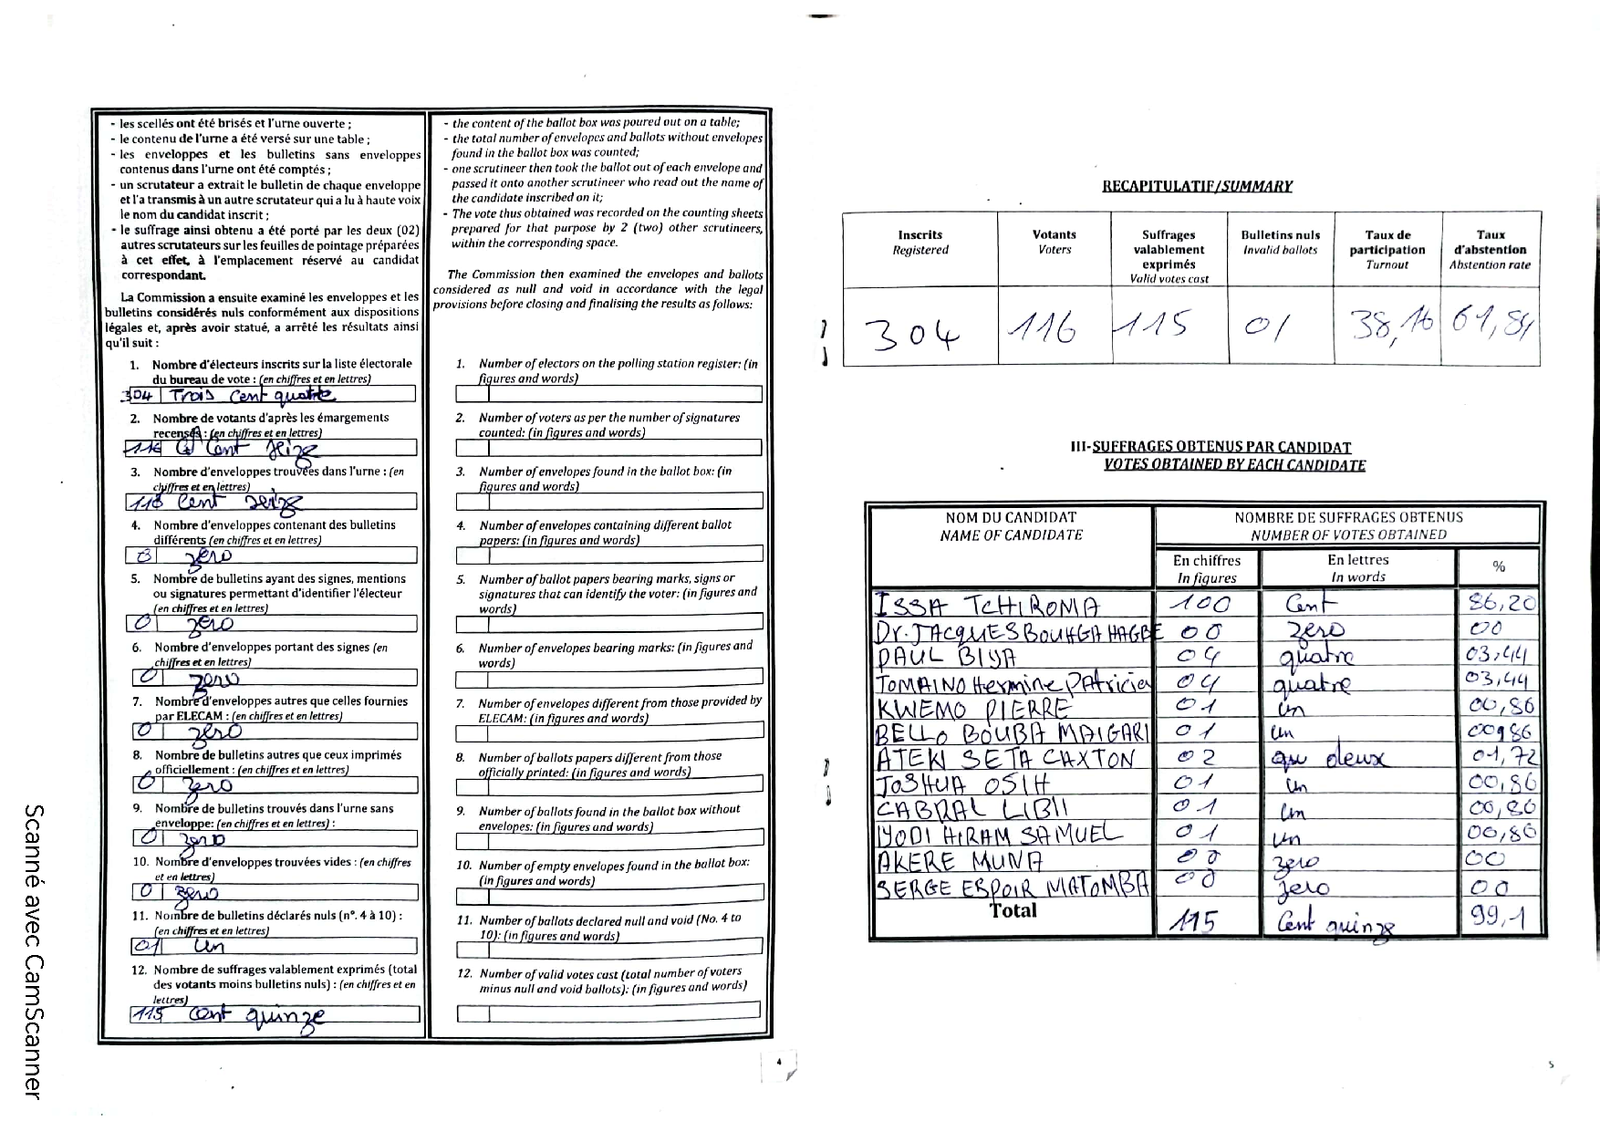 - les scellés ont été brisés et l'urne ouverte ;
- le contenu de l'urne a été versé sur une table ;
- les enveloppes et les bulletins sans enveloppes
contenus dans l'urne ont été comptés ;
- un scrutateur a extrait le bulletin de chaque enveloppe
et l'a transmis à un autre scrutateur qui a lu à haute voix
le nom du candidat inscrit ;
- le suffrage ainsi obtenu a été porté par les deux (02)
autres scrutateurs sur les feuilles de pointage préparées
à cet effet, à l'emplacement réservé au candidat
correspondant.
La Commission a ensuite examiné les enveloppes et les
bulletins considérés nuls conformément aux dispositions
légales et, après avoir statué, a arrêté les résultats ainsi
qu'il suit :
1. Nombre d'électeurs inscrits sur la liste électorale
du bureau de vote : (en chiffres et en lettres)
304 Trois cent quatre
2. Nombre de votants d'après les émargements
recensés : (en chiffres et en lettres)
116 Cent seize
3. Nombre d'enveloppes trouvées dans l'urne : (en
chiffres et en lettres)
116 Cent seize
4. Nombre d'enveloppes contenant des bulletins
différents (en chiffres et en lettres)
0 zero
5. Nombre de bulletins ayant des signes, mentions
ou signatures permettant d'identifier l'électeur
(en chiffres et en lettres)
0 zero
6. Nombre d'enveloppes portant des signes (en
chiffres et en lettres)
0 zero
7. Nombre d'enveloppes autres que celles fournies
par ELECAM : (en chiffres et en lettres)
0 zero
8. Nombre de bulletins autres que ceux imprimés
officiellement : (en chiffres et en lettres)
0 zero
9. Nombre de bulletins trouvés dans l'urne sans
enveloppe: (en chiffres et en lettres) :
0 zero
10. Nombre d'enveloppes trouvées vides : (en chiffres
et en lettres)
0 zero
11. Nombre de bulletins déclarés nuls (n°. 4 à 10) :
(en chiffres et en lettres)
01 un
12. Nombre de suffrages valablement exprimés (total
des votants moins bulletins nuls) : (en chiffres et en
lettres)
115 cent quinze
- the content of the ballot box was poured out on a table;
- the total number of envelopes and ballots without envelopes
found in the ballot box was counted;
- one scrutineer then took the ballot out of each envelope and
passed it onto another scrutineer who read out the name of
the candidate inscribed on it;
- The vote thus obtained was recorded on the counting sheets
prepared for that purpose by 2 (two) other scrutineers,
within the corresponding space.
The Commission then examined the envelopes and ballots
considered as null and void in accordance with the legal
provisions before closing and finalising the results as follows:
1. Number of electors on the polling station register: (in
figures and words)
2. Number of voters as per the number of signatures
counted: (in figures and words)
3. Number of envelopes found in the ballot box: (in
figures and words)
4. Number of envelopes containing different ballot
papers: (in figures and words)
5. Number of ballot papers bearing marks, signs or
signatures that can identify the voter: (in figures and
words)
6. Number of envelopes bearing marks: (in figures and
words)
7. Number of envelopes different from those provided by
ELECAM: (in figures and words)
8. Number of ballots papers different from those
officially printed: (in figures and words)
9. Number of ballots found in the ballot box without
envelopes: (in figures and words)
10. Number of empty envelopes found in the ballot box:
(in figures and words)
11. Number of ballots declared null and void (No. 4 to
10): (in figures and words)
12. Number of valid votes cast (total number of voters
minus null and void ballots): (in figures and words)
4
Scanné avec CamScanner
RECAPITULATIF/SUMMARY
Inscrits Registered Votants Voters Suffrages valablement exprimés Valid votes cast Bulletins nuls Invalid ballots Taux de participation Turnout Taux d'abstention Abstention rate
304 116 115 01 38,16 61,84
III-SUFFRAGES OBTENUS PAR CANDIDAT
VOTES OBTAINED BY EACH CANDIDATE
NOM DU CANDIDAT NOMBRE DE SUFFRAGES OBTENUS
NAME OF CANDIDATE NUMBER OF VOTES OBTAINED
En chiffres En lettres %
In figures In words
ISSA TCHIROMA 100 Cent 86,20
Dr. JACQUES BOUHGA HAGBE 00 zero 00
PAUL BIYA 04 quatre 03,44
TOMAINO Hermine Patricia 04 quatre 03,44
KWEMO PIERRE 01 un 00,86
BELLO BOUBA MAIGARI 01 un 00,86
ATEKI SETA CAXTON 02 deux 01,72
JOSHUA OSIH 01 un 00,86
CABRAL LIBII 01 un 00,86
IYODI HIRAM SAMUEL 01 un 00,86
AKERE MUNA 00 zero 00
SERGE ESPOIR MATOMBA 00 zero 00
Total 115 Cent quinze 99,1
5